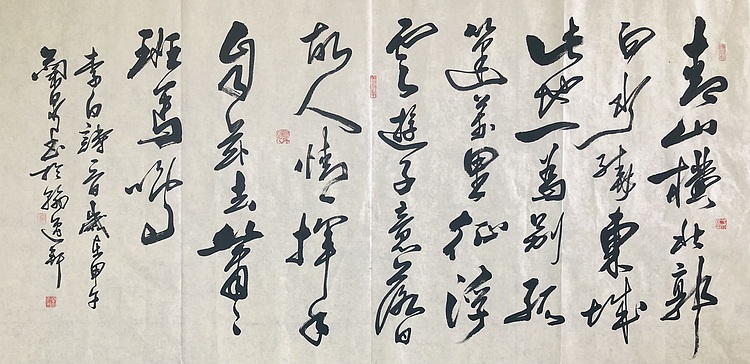 青山橫北郭
白水繞東城
此地一為別孤
蓬萬里征浮
雲遊子意落日
故人情揮手
自茲去蕭〻
班馬鳴
李白詩一首歲在甲午
书於翰